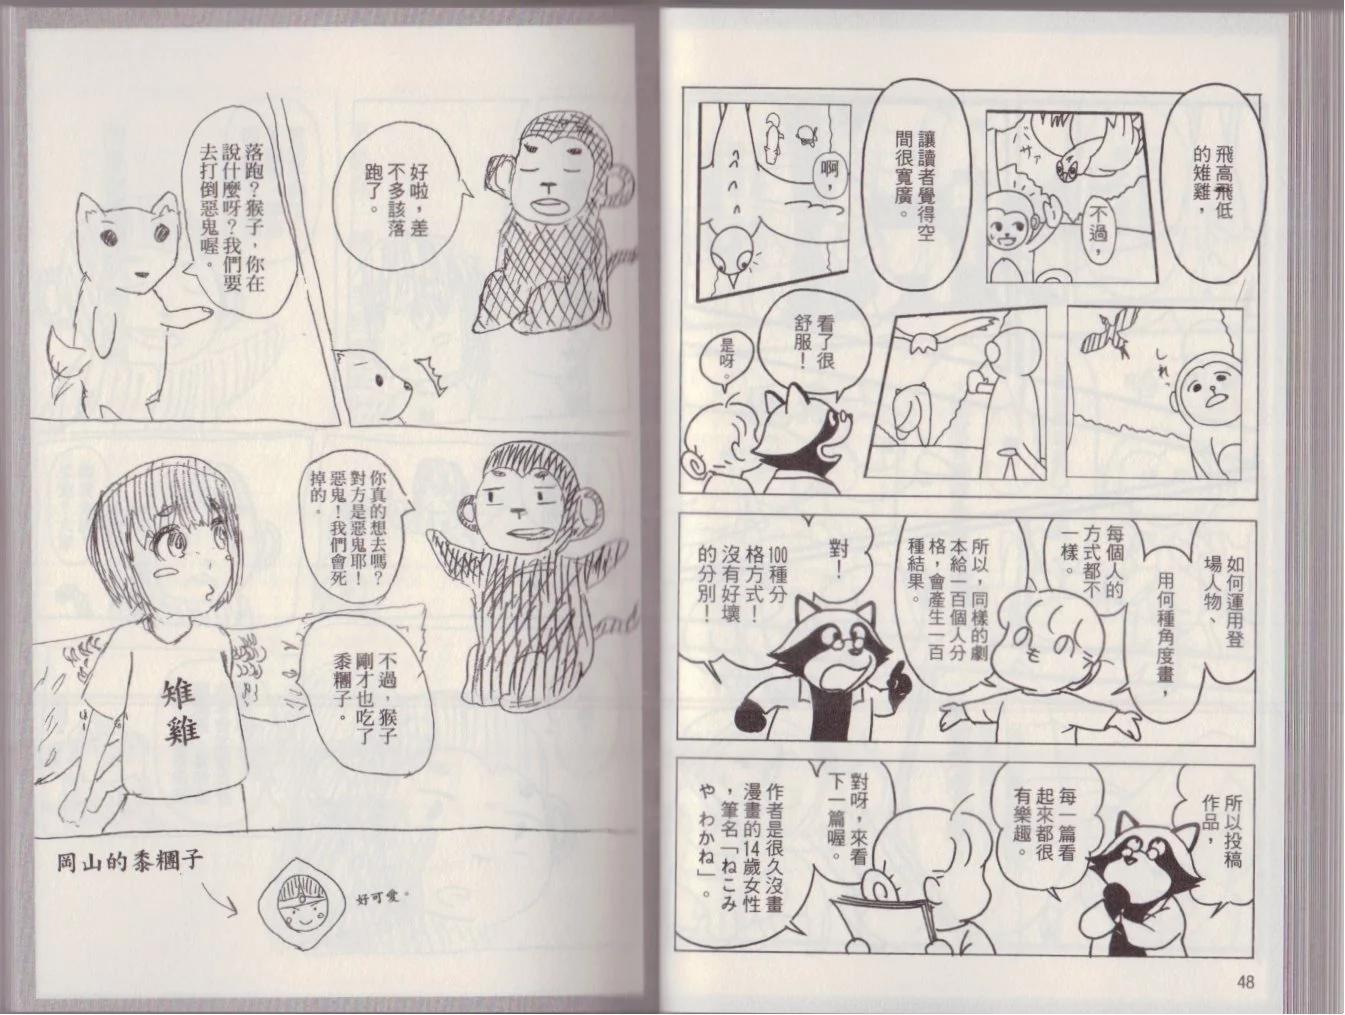 飛高飛低
的雉雞，
バサァ
不過，
讓讀者覺得空
間很寬廣。
啊，
しれっ
看了很
舒服！
是呀。
如何運用登
場人物、
用何種角度畫，
每個人的
方式都不
一樣。
所以，同樣的劇
本給一百個人分
格，會產生一百
種結果。
對！
100種分
格方式！
沒有好壞
的分別！
所以投稿
作品，
每一篇看
起來都很
有樂趣。
對呀，來看
下一篇喔。
作者是很久沒畫
漫畫的14歲女性
，筆名「ねこみ
や わかね」。
48
好啦，差
不多該落
跑了。
落跑？猴子，你在
說什麼呀？我們要
去打倒惡鬼喔。
你真的想去嗎？
對方是惡鬼耶！
惡鬼！我們會死
掉的。
不過，猴子
剛才也吃了
黍糰子。
雉雞
岡山的黍糰子
好可愛。